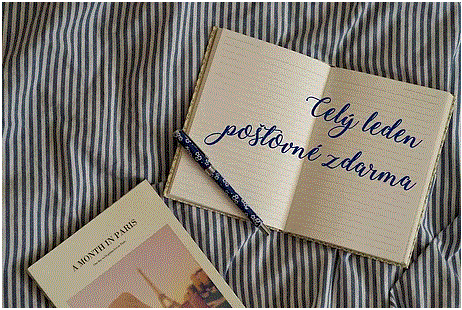 Celý leden
poštovné zdarma
A MONTH IN PARIS